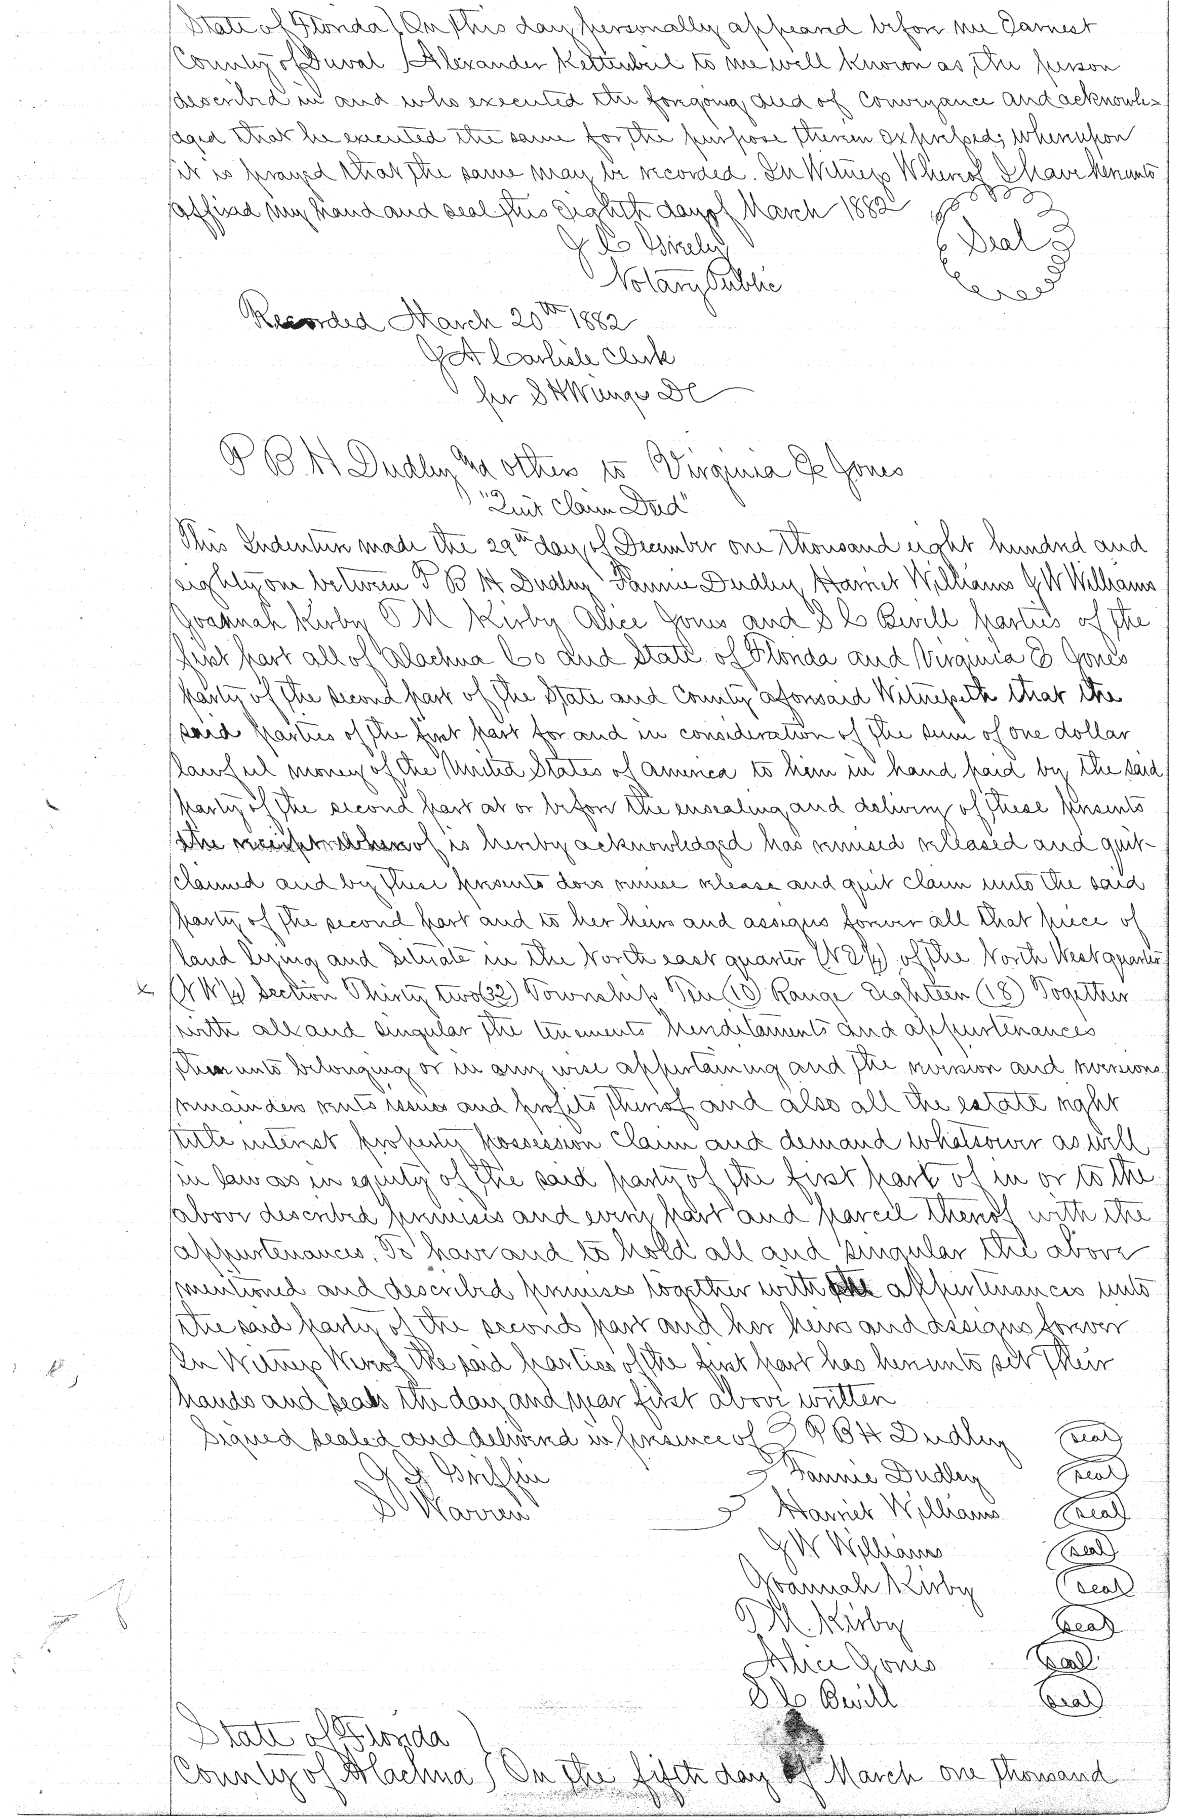 State of Florida ) On this day personally appeared before me Earnest
County of Duval ) Alexander to me well known as the person
described in and who executed the foregoing deed of conveyance and acknowle=
dged that he executed the same for the purpose therein expressed; whereupon
it is prayed that the same may be recorded. In Witness Whereof I have hereunto
affixed my hand and seal this Eighth day of March 1882
Seal
J C
Notary Public
Recorded March 20th 1882
J A Carlisle Clerk
per S H Wienges DC
P B H Dudley and others to Virginia E Jones
"Quit Claim Deed"
This Indenture made the 29th day of December one thousand eight hundred and
eighty one between P B H Dudley Fannie Dudley Harriet Williams J W Williams
Joannah Kirby T M Kirby Alice Jones and S C Bevill parties of the
first part all of Alachua Co and State of Florida and Virginia E Jones
party of the second part of the State and County aforesaid Witnesseth that the
said parties of the first part for and in consideration of the sum of one dollar
lawful money of the United States of America to him in hand paid by the said
party of the second part at or before the ensealing and delivery of these presents
the receipt whereof is hereby acknowledged has remised released and quit-
claimed and by these presents does remise release and quit claim unto the said
party of the second part and to her heirs and assigns forever all that piece of
land lying and Situate in the North east quarter (N E 1/4) of the North West quarter
x (N W 1/4) Section Thirty two (32) Township Ten (10) Range Eighteen (18) Together
with all and singular the tenements hereditaments and appurtenances
thereunto belonging or in any wise appertaining and the reversion and reversions
remainders rents issues and profits thereof and also all the estate right
title interest property possession claim and demand whatsoever as well
in law as in equity of the said party of the first part of in or to the
above described premises and every part and parcel thereof with the
appurtenances. To have and to hold all and singular the above
mentioned and described premises together with the appurtenances unto
the said party of the second part and her heirs and assigns forever
In Witness Wereof the said parties of the first part has hereunto set Their
hands and seals the day and year first above written
Signed sealed and delivered in presence of } P B H Dudley seal
J J Griffin Fannie Dudley seal
S Warren Harriet Williams seal
J W Williams seal
Joannah Kirby seal
T M. Kirby seal
Alice Jones seal
S C Bevill seal
State of Florida )
County of Alachua ) On the fifth day of March one thousand